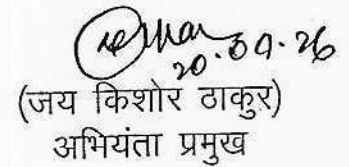 20.09.26
(जय किशोर ठाकुर)
अभियंता प्रमुख